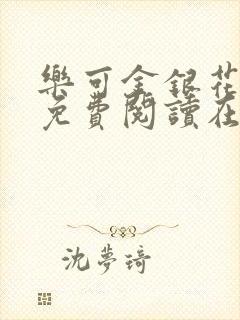 樂可金銀花
免費閱讀在
沈夢琦